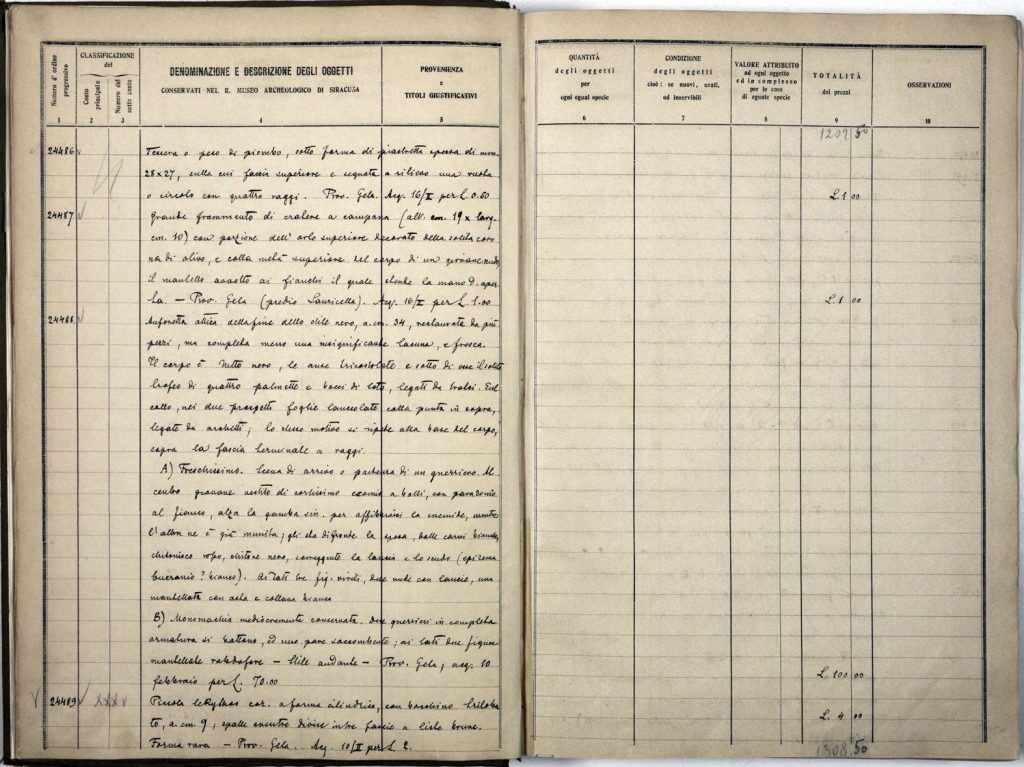 Numero d'ordine progressivo
CLASSIFICAZIONE
del
Conto principale
Numero del sotto conto
DENOMINAZIONE E DESCRIZIONE DEGLI OGGETTI
CONSERVATI NEL R. MUSEO ARCHEOLOGICO DI SIRACUSA
PROVENIENZA
e
TITOLI GIUSTIFICATIVI
1 2 3 4 5
24486 Tessera o peso di piombo, sotto forma di piastretta spessa di mm.
28 x 27, sulla cui faccia superiore è segnata a rilievo una ruota
o circolo con quattro raggi. Prov. Gela. Acq. 16/II per L 0.50
24487 Grande frammento di cratere a campana (alt. cm. 19 x larg.
cm. 10) con porzione dell'orlo superiore decorato della solita coro
na di olivo, e colla metà superiore del corpo di un giovane nudo,
il mantello avvolto ai fianchi il quale stende la mano D. aper
ta. — Prov. Gela (predio Lauricella). Acq. 16/II per L 1.00
24488 Anforetta attica della fine dello stile nero, a. cm. 34, restaurata da più
pezzi, ma completa meno una insignificante lacuna, e fresca.
Il corpo è tutto nero, le anse tricostolate e sotto di esse il solito
trofeo di quattro palmette e bocci di loto, legati da tralci. Sul
collo, nei due prospetti foglie lanceolate colla punta in sopra,
legate da archetti; lo stesso motivo si ripete alla base del corpo,
sopra la fascia terminale a raggi.
A) Freschissimo. Scena di arrivo o partenza di un guerriero. Al
centro giovane vestito di cortissimo a balli, con parazonio
al fianco, alza la gamba sin. per affibbiarsi la cnemide, mentre
l'altra ne è già munita; gli sta difronte la sposa, dalle carni bianche,
chitonisco rosso, chitone nero, sorreggente la lancia e lo scudo (epísema
bucranio? bianco). Ai lati tre fig. virili, due nude con lancia, una
mantellata con asta e collana bianca
B) Monomachia mediocremente conservata. Due guerrieri in completa
armatura si battono, ed uno pare soccombente; ai lati due figure
mantellate rabdofore — Stile andante — Prov. Gela, acq. 10
febbraio per L. 70.00
24489 XXX Piccola lekythos cor. a forma cilindrica, con bocchino triloba
to, a. cm. 9, spalle ventre diviso in tre fascie a liste brune.
Forma rara — Prov. Gela. Acq. 10/II per L. 2.
QUANTITÀ
degli oggetti
per
ogni egual specie
CONDIZIONE
degli oggetti
cioè: se nuovi, usati,
od inservibili
VALORE ATTRIBUITO
ad ogni oggetto
ed in complesso
per le cose
di eguale specie
TOTALITÀ
dei prezzi
OSSERVAZIONI
6 7 8 9 10
1202.50
L. 1 00
L. 1 00
L. 100 00
L. 4 00
1308.50